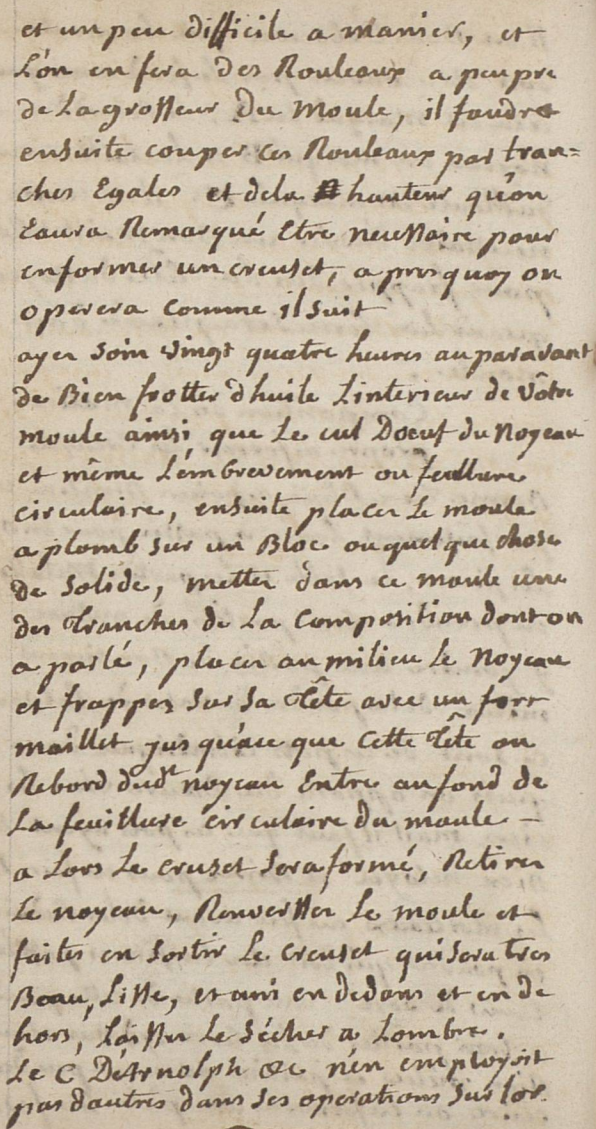 et un peu difficile a manier, et
L'on en fera des Rouleaux a peupre
de La grosseur Du Moule, il faudra
ensuite couper ces Rouleaux par tran=
ches Egales et dela hauteur qu'on
Laura Remarqué Etre necessaire pour
enformer un creuset, apres quoy on
operera comme il suit
ayer soin vingt quatre heures auparavant
de Bien frotter d'huile L'interieur de vôtre
moule ainsi que Le cul Doeuf du Noyeau
et même L'embrevement ou feullure
circulaire, ensuite placer Le moule
aplomb sur un Bloc ou quelque chose
de solide, metter dans ce moule une
des Tranches de La Composition dont on
a parlé, placer au milieu Le Noyeau
et frapper sur sa Tête avec un fort
maillet jusqu'ace que Cette Tête ou
Rebord dudt noyeau Entre aufond de
La feuillure circulaire du moule –
a Lors Le cruset sera formé, Retirer
Le noyeau, Renversser Le moule et
faites en sortir Le Creuset qui sera tres
Beau, Lisse, et uni en dedans et en de
hors, Laisser Le sécher a Lombre.
Le C. D'Arnolph &c n'en employoit
pas dautres dans ses operations sur lor.